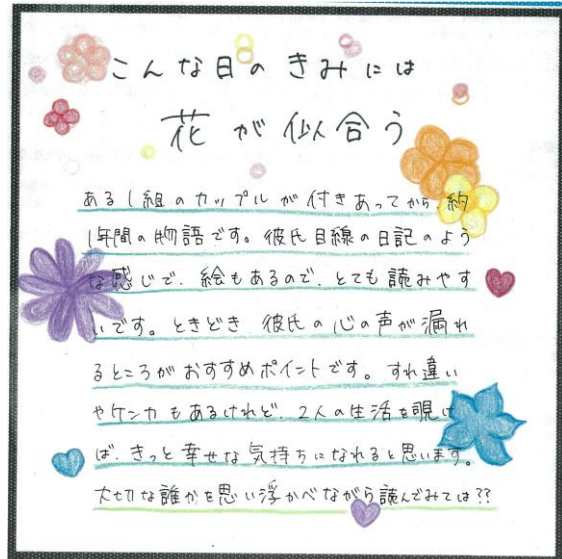 こんな日のきみには
花が似合う
ある1組のカップルが付きあってから、約
1年間の物語です。彼氏目線の日記のよう
な感じで、絵もあるので、とても読みやす
いです。ときどき、彼氏の心の声が漏れ
るところがおすすめポイントです。すれ違い
やケンカもあるけれど、2人の生活を覗け
ば、きっと幸せな気持ちになれると思います。
大切な誰かを思い浮かべながら読んでみては??